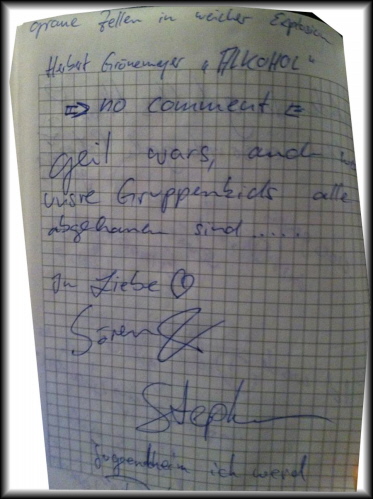 graue Zellen in weicher Explosion
Herbert Grönemeyer "ALKOHOL"
⇒ no comment ⇐
geil wars, auch
unsre Gruppenkids alle
abgehauen sind.....
In Liebe ♡
Sören &
Steph
ich werd